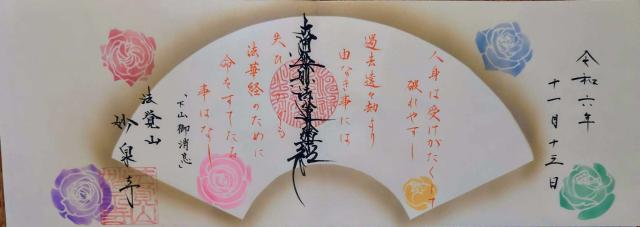 令和六年
十一月十三日
人身は受けがたくして
破れやすし
過去遠々劫より
由なき事には
失ひしかども
法華経のために
命をすてたる
事はなし
「下山御消息」
法覚山
妙泉寺